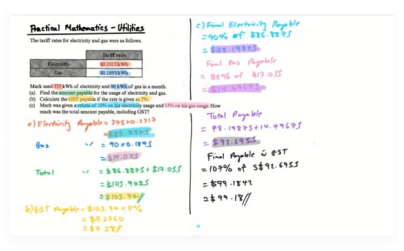 Practical Mathematics - Utilities
The tariff rates for electricity and gas were as follows.
Tariff rates
Electricity $0.2317/kWh
Gas $0.1895/kWh
Mark used 375 kWh of electricity and 90 kWh of gas in a month.
(a) Find the amount payable for the usage of electricity and gas.
(b) Calculate the GST payable if the rate is given as 7%.
(c) Mark was given a rebate of 10% on his electricity usage and 15% on his gas usage. How
much was the total amount payable, including GST?
a) Electricity Payable = 375 x 0.2317
= $86.8875
Gas = 90 x 0.1895
= $17.055
Total = $86.8875 + $17.055
= $103.9425
= $103.94
b) GST Payable = $103.94 x 7%
= $7.2760
= $7.28
c) Final Electricity Payable
= 90% of $86.8875
= $78.19875
Final Gas Payable
= 85% of $17.055
= $14.49675
Total Payable
= 78.19875 + 14.49675
= $92.6955
Final Payable w GST
= 107% of S$92.6955
= $99.1842
= $99.18